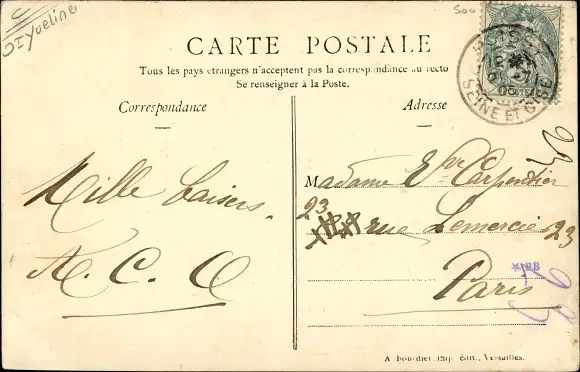 CARTE POSTALE
Tous les pays étrangers n'acceptent pas la correspondance au recto
Se renseigner à la Poste.
Correspondance
Adresse
Mille baisers.
A. C. O
Madame Vve Carpentier
23
rue Lemercier 23
Paris
SEINE ET OISE
POSTES
A Bourdier, imp. édit., Versailles.